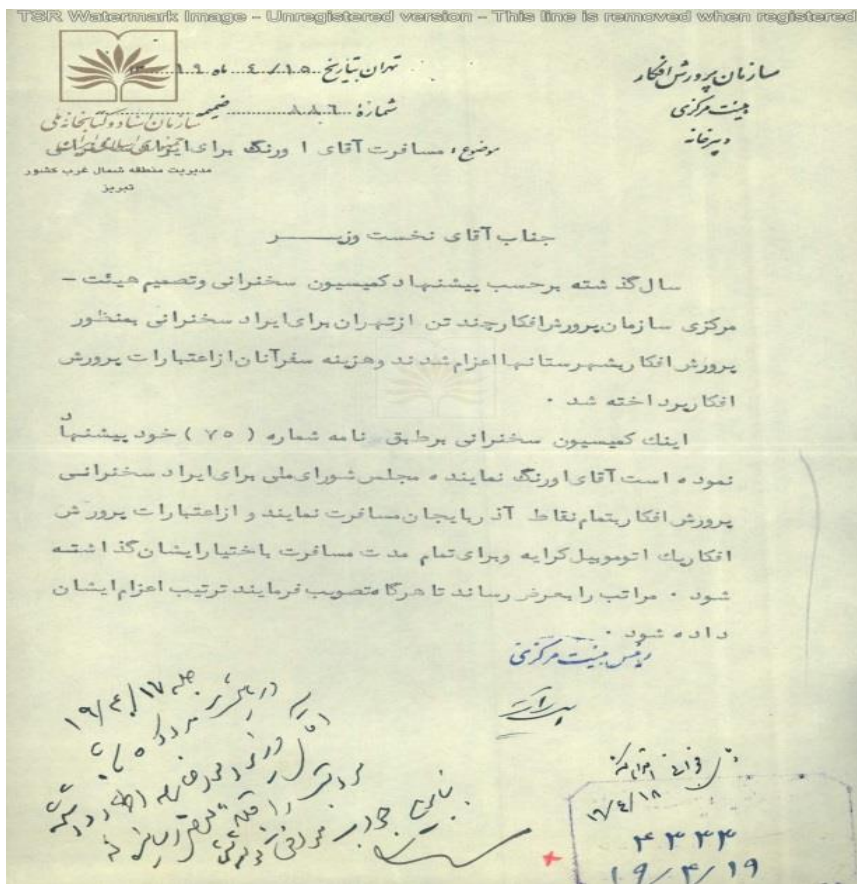 TSR Watermark Image - Unregistered version - This line is removed when registered
سازمان پرورش افکار
هیئت مرکزی
دبیرخانه
تهران بتاریخ ۴/۱۵ ماه ۱۹
شمارهٔ ۸۸۶ ضمیمه
سازمان اسناد و کتابخانه ملی
جمهوری اسلامی ایران
مدیریت منطقه شمال غرب کشور
تبریز
موضوع: مسافرت آقای اورنگ برای ایراد سخنرانی
جناب آقای نخست وزیر
سال گذشته برحسب پیشنهاد کمیسیون سخنرانی وتصمیم هیئت –
مرکزی سازمان پرورش افکار چند تن ازتهران برای ایراد سخنرانی بمنظور
پرورش افکار بشهرستانها اعزام شدند وهزینه سفرآنان ازاعتبارات پرورش
افکار پرداخته شد ۰
اینك کمیسیون سخنرانی برطبق نامه شماره ( ۷۵ ) خود پیشنهاد
نموده است آقای اورنگ نماینده مجلس شورای ملی برای ایراد سخنرانی
پرورش افکار بتمام نقاط آذربایجان مسافرت نمایند و ازاعتبارات پرورش
افکار یك اتوموبیل کرایه وبرای تمام مدت مسافرت باختیار ایشان گذاشته
شود ۰ مراتب را بعرض رساند تا هرگاه تصویب فرمایند ترتیب اعزام ایشان
داده شود ۰
رئیس هیئت مرکزی
۱۹/۴/۱۷
۱۹/۴/۱۸
۴۳۳۳
۱۹/۴/۱۹